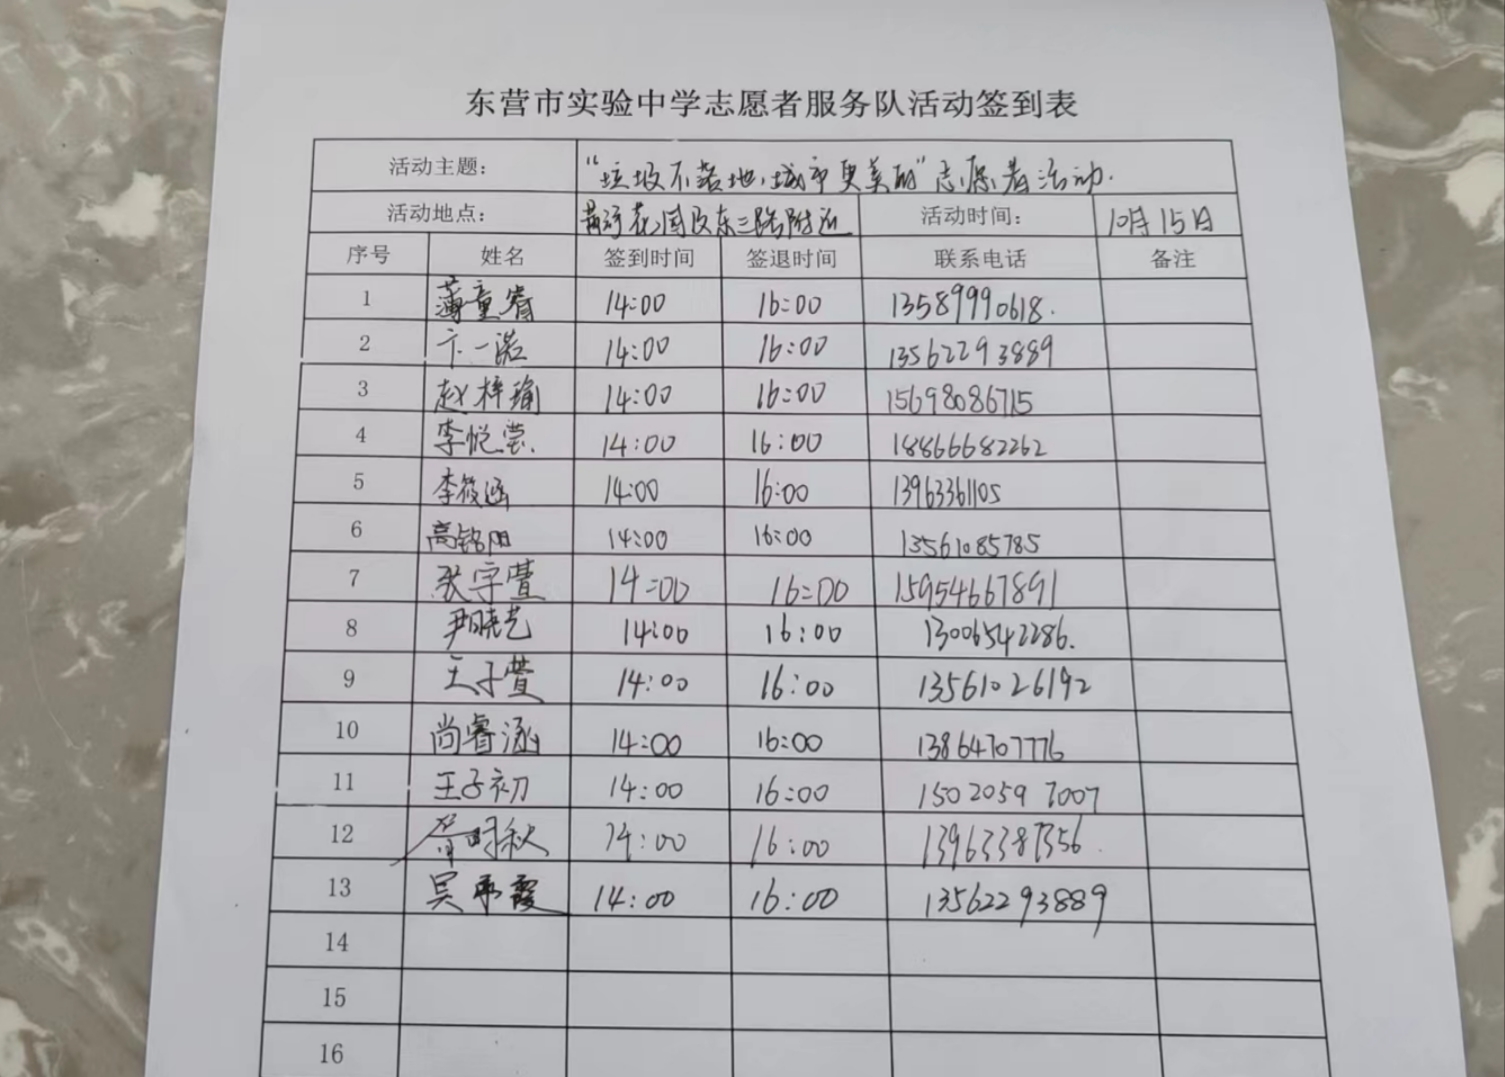 东营市实验中学志愿者服务队活动签到表
活动主题： “垃圾不落地，城市更美丽”志愿者活动.
活动地点： 黄河花园及东三路附近 活动时间： 10月15日
序号 姓名 签到时间 签退时间 联系电话 备注
1 薄童睿 14:00 16:00 13589990618.
2 卞一诺 14:00 16:00 13562293889
3 赵梓瑜 14:00 16:00 15698086715
4 李悦莹. 14:00 16:00 18866682262
5 李筱涵 14:00 16:00 13963361105
6 高铭阳 14:00 16:00 13561085785
7 张字萱 14:00 16:00 15954667891
8 尹晓艺 14:00 16:00 13006542286.
9 王子萱 14:00 16:00 13561026192
10 尚睿涵 14:00 16:00 13864707776
11 王子初 14:00 16:00 15020597007
12 明秋 14:00 16:00 13963387356.
13 吴霞 14:00 16:00 13562293889
14
15
16